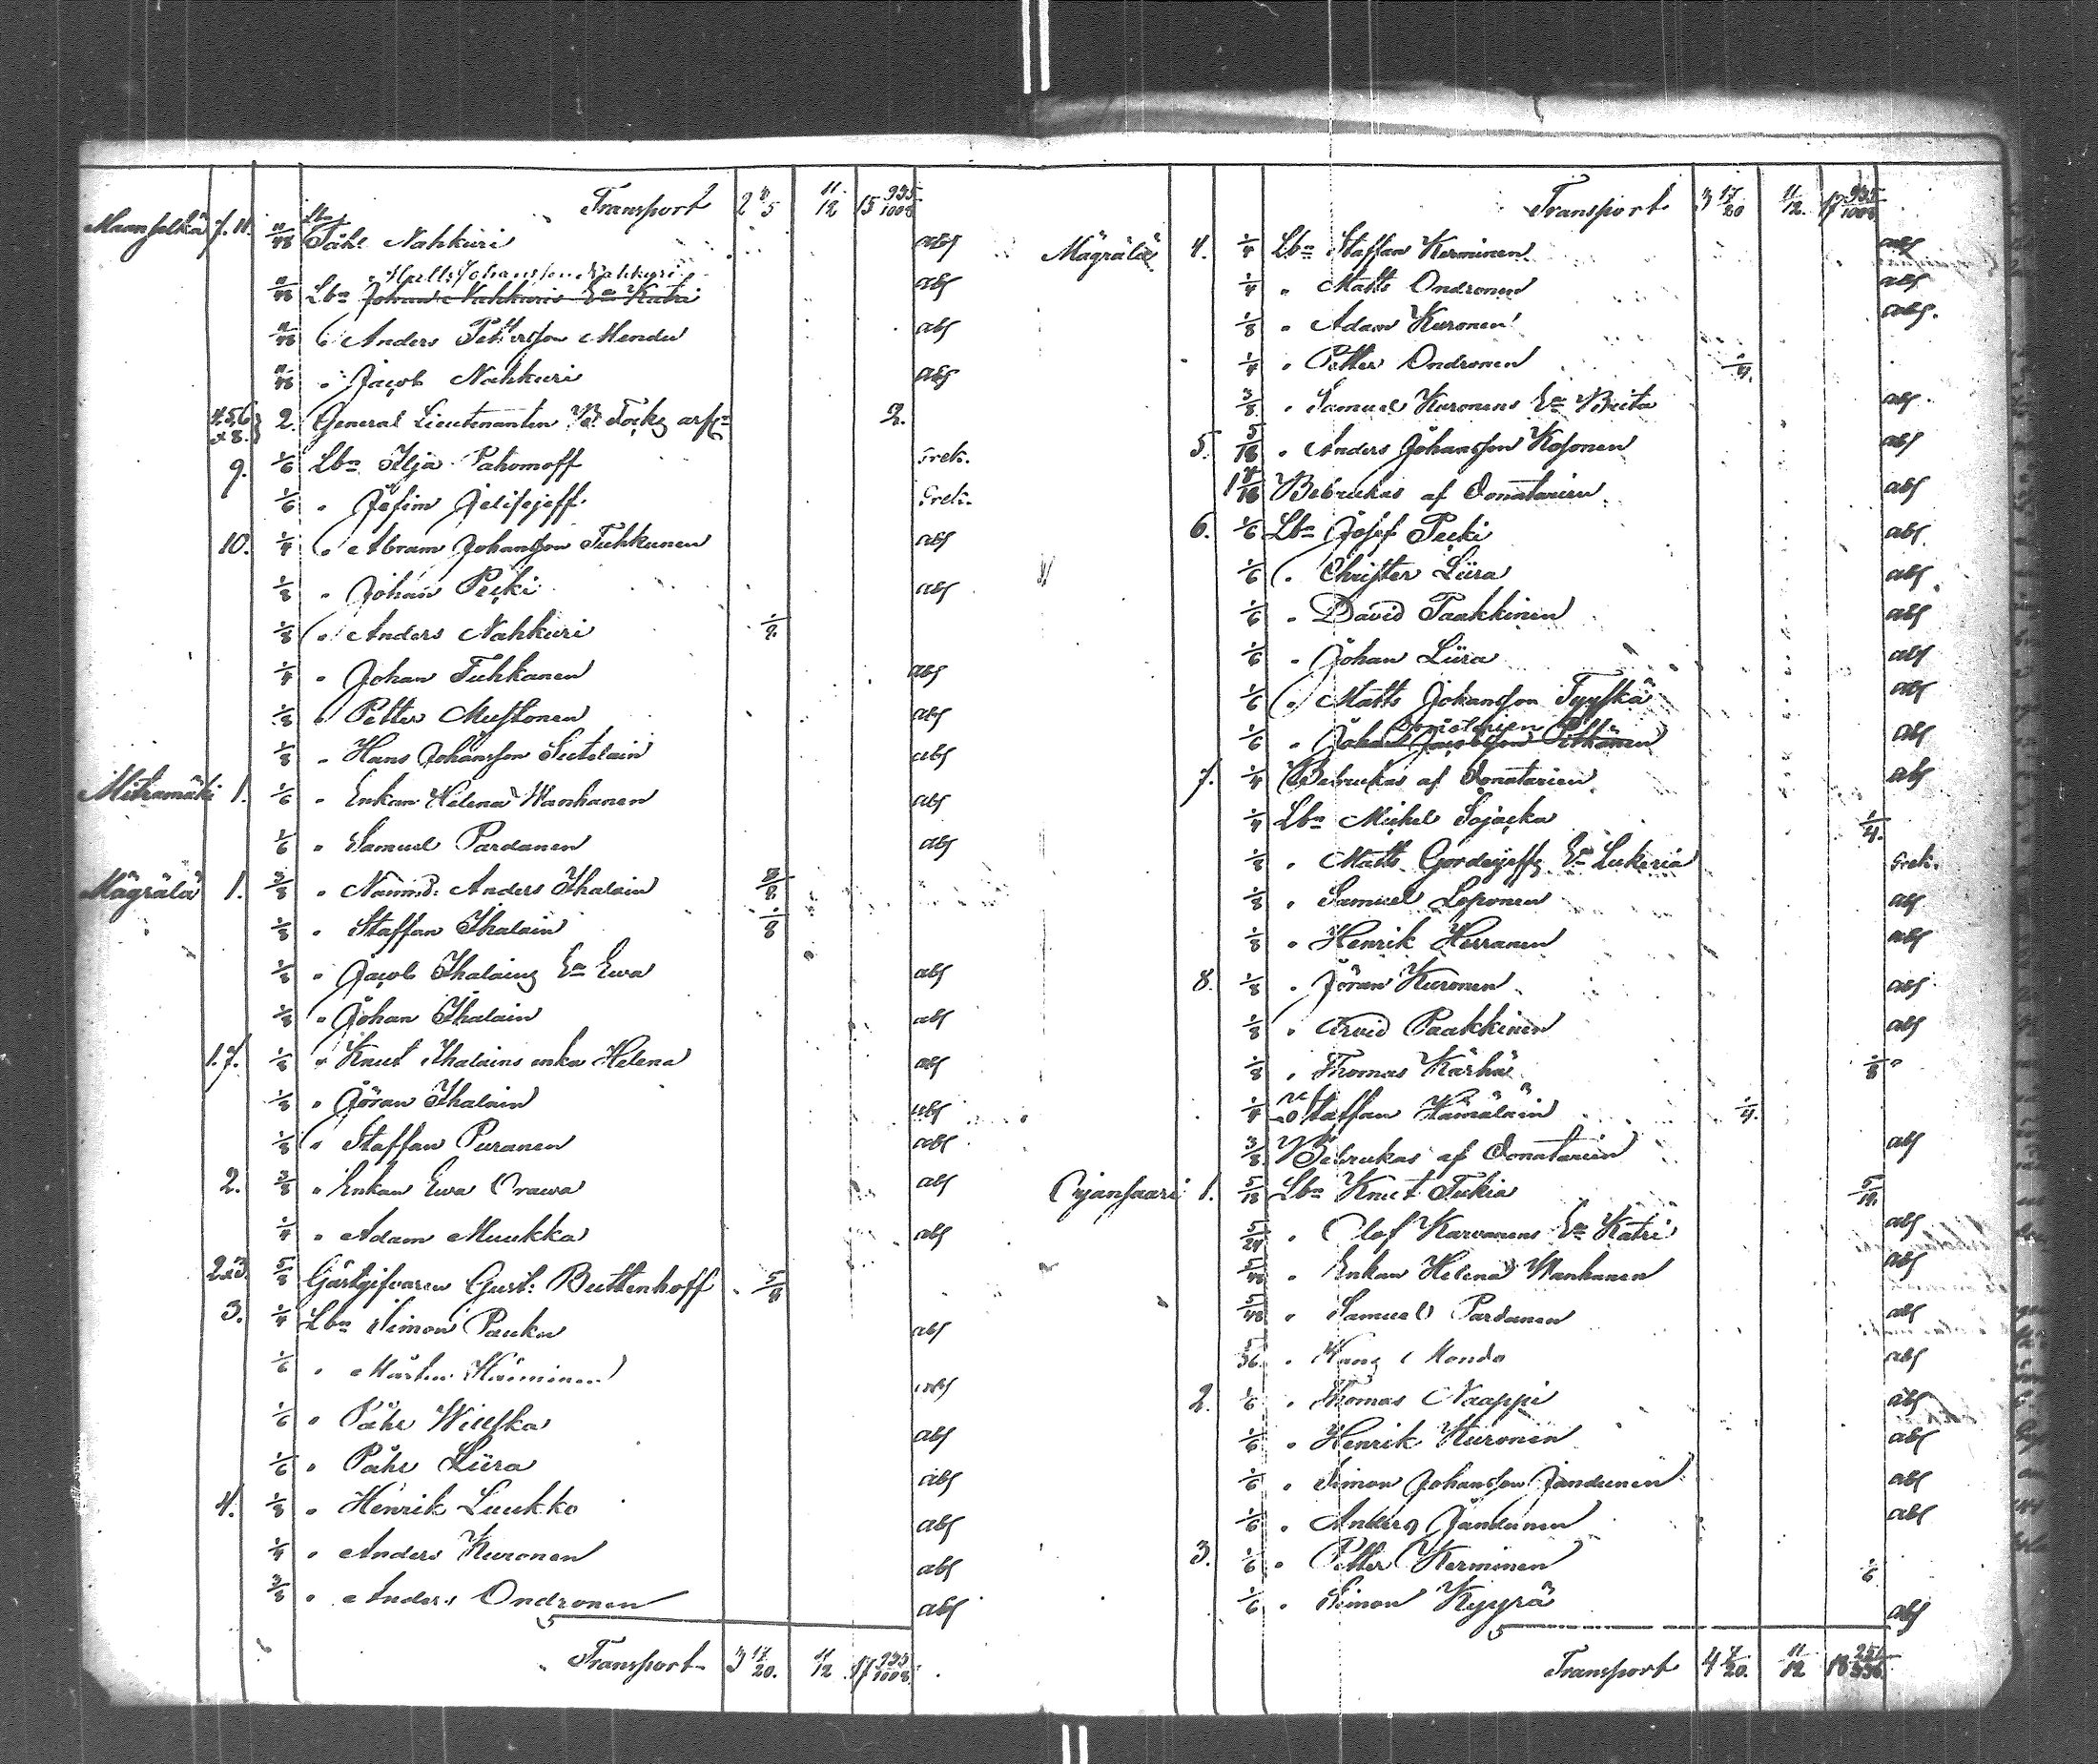 Transport 2 3/5 11/12 15 935/1008
Maanselkä 7. 11. 11/48 Lbn Påhl Nahkuri abs
11/48 Lbn Matts Johansson Nahkuri abs
Johan Nahkuris Ea Katri
11/48 " Anders Pettersson Mendu abs
11/48 " Jacob Nahkuri abs
4.5.6 & 8. 2. General Lieutenanten Focks arfr 2.
9. 1/6 Lbn Ilja Pahomoff Grek.
1/6 " Jefim Jelisejeff Grek.
10. 1/4 " Abram Johansson Tuhkunen abs
1/8 " Johan Pecki abs
1/8 " Anders Nahkuri 1/8.
1/4 " Johan Tuhkanen abs
1/8 " Petter Mustonen abs
1/8 " Hans Johansson Sutelain abs
Mitramäki 1. 1/6 " Enkan Helena Wanhanen abs
1/6 " Samuel Pardanen abs
Mägrälä 1. 3/8 " Nämnd. Anders Ihalain 3/8
1/8 " Staffan Ihalain 1/8
1/8 " Jacob Ihalains Ea Ewa abs
1/8 " Johan Ihalain abs
1.7. 1/8 " Knut Ihalains enka Helena abs
1/8 " Jöran Ihalain abs
1/8 " Staffan Puranen abs
2. 3/8 " Enkan Ewa Orawa abs
1/4 " Adam Muukka abs
2&3. 5/8 Gästgifvaren Gust: Buttenhoff 5/8
3. 1/4 Lbn Simon Pauku abs
1/6 " Mårten Häminen abs
1/6 " Påhl Wiuska abs
1/6 " Påhl Liira abs
4. 1/8 " Henrik Luukko abs
1/4 " Anders Kuronen abs
3/8 " Anders Ondronen abs
Transport 3 17/20. 11/12 17 935/1008
Transport 3 17/20 11/12. 17 935/1008
Mägrälä 4. 1/4 Lbn Staffan Kerminen abs
1/4 " Matts Ondronen abs
1/8 " Adam Kuronen abs.
1/4 " Petter Ondronen 1/4.
3/8 " Samuel Kuronens Ea Brita abs
5. 5/18 " Anders Johansson Kosonen abs
Bebrukas af Donatarien abs
6. 1/6 Lbn Josef Pecki abs
1/6 " Christer Liira abs
1/6 " David Paakkinen abs
1/6 " Johan Liira abs
1/6 " Matts Johansson Tyyskä abs
1/6 " Donatarien abs
Johan Jacobsson Pitkänen
7. 1/4 Bebrukas af Donatarien abs
1/4 Lbn Michel Sojacka 1/4.
1/8 " Matts Gordejeffs Ea Lukeria Grek.
1/8 " Samuel Loponen abs
1/8 " Henrik Herranen abs
8. 1/8 " Jöran Kuronen abs
1/8 " Arvid Paakkinen abs
1/8 " Thomas Kärhä 1/8
1/4 " Staffan Hämäläin 1/4.
3/8 Bebrukas af Donatarien abs
Ojansaari 1. 5/18 Lbn Knut Tukia 5/18.
5/24 " Olof Karvanens Ea Katri abs
5/48 " Enkan Helena Wanhanen abs
5/48 " Samuel Pardanen abs
5/36 " Hans Mondo abs
2. 1/6 " Thomas Naappi abs
1/6 " Henrik Kuronen abs
1/6 " Simon Johansson Jandunen abs
1/6 " Anders Jandunen abs
3. 1/6 " Petter Kerminen 1/6
1/6 " Simon Kyyrä abs
Transport 4 7/20. 11/12 18 251/336